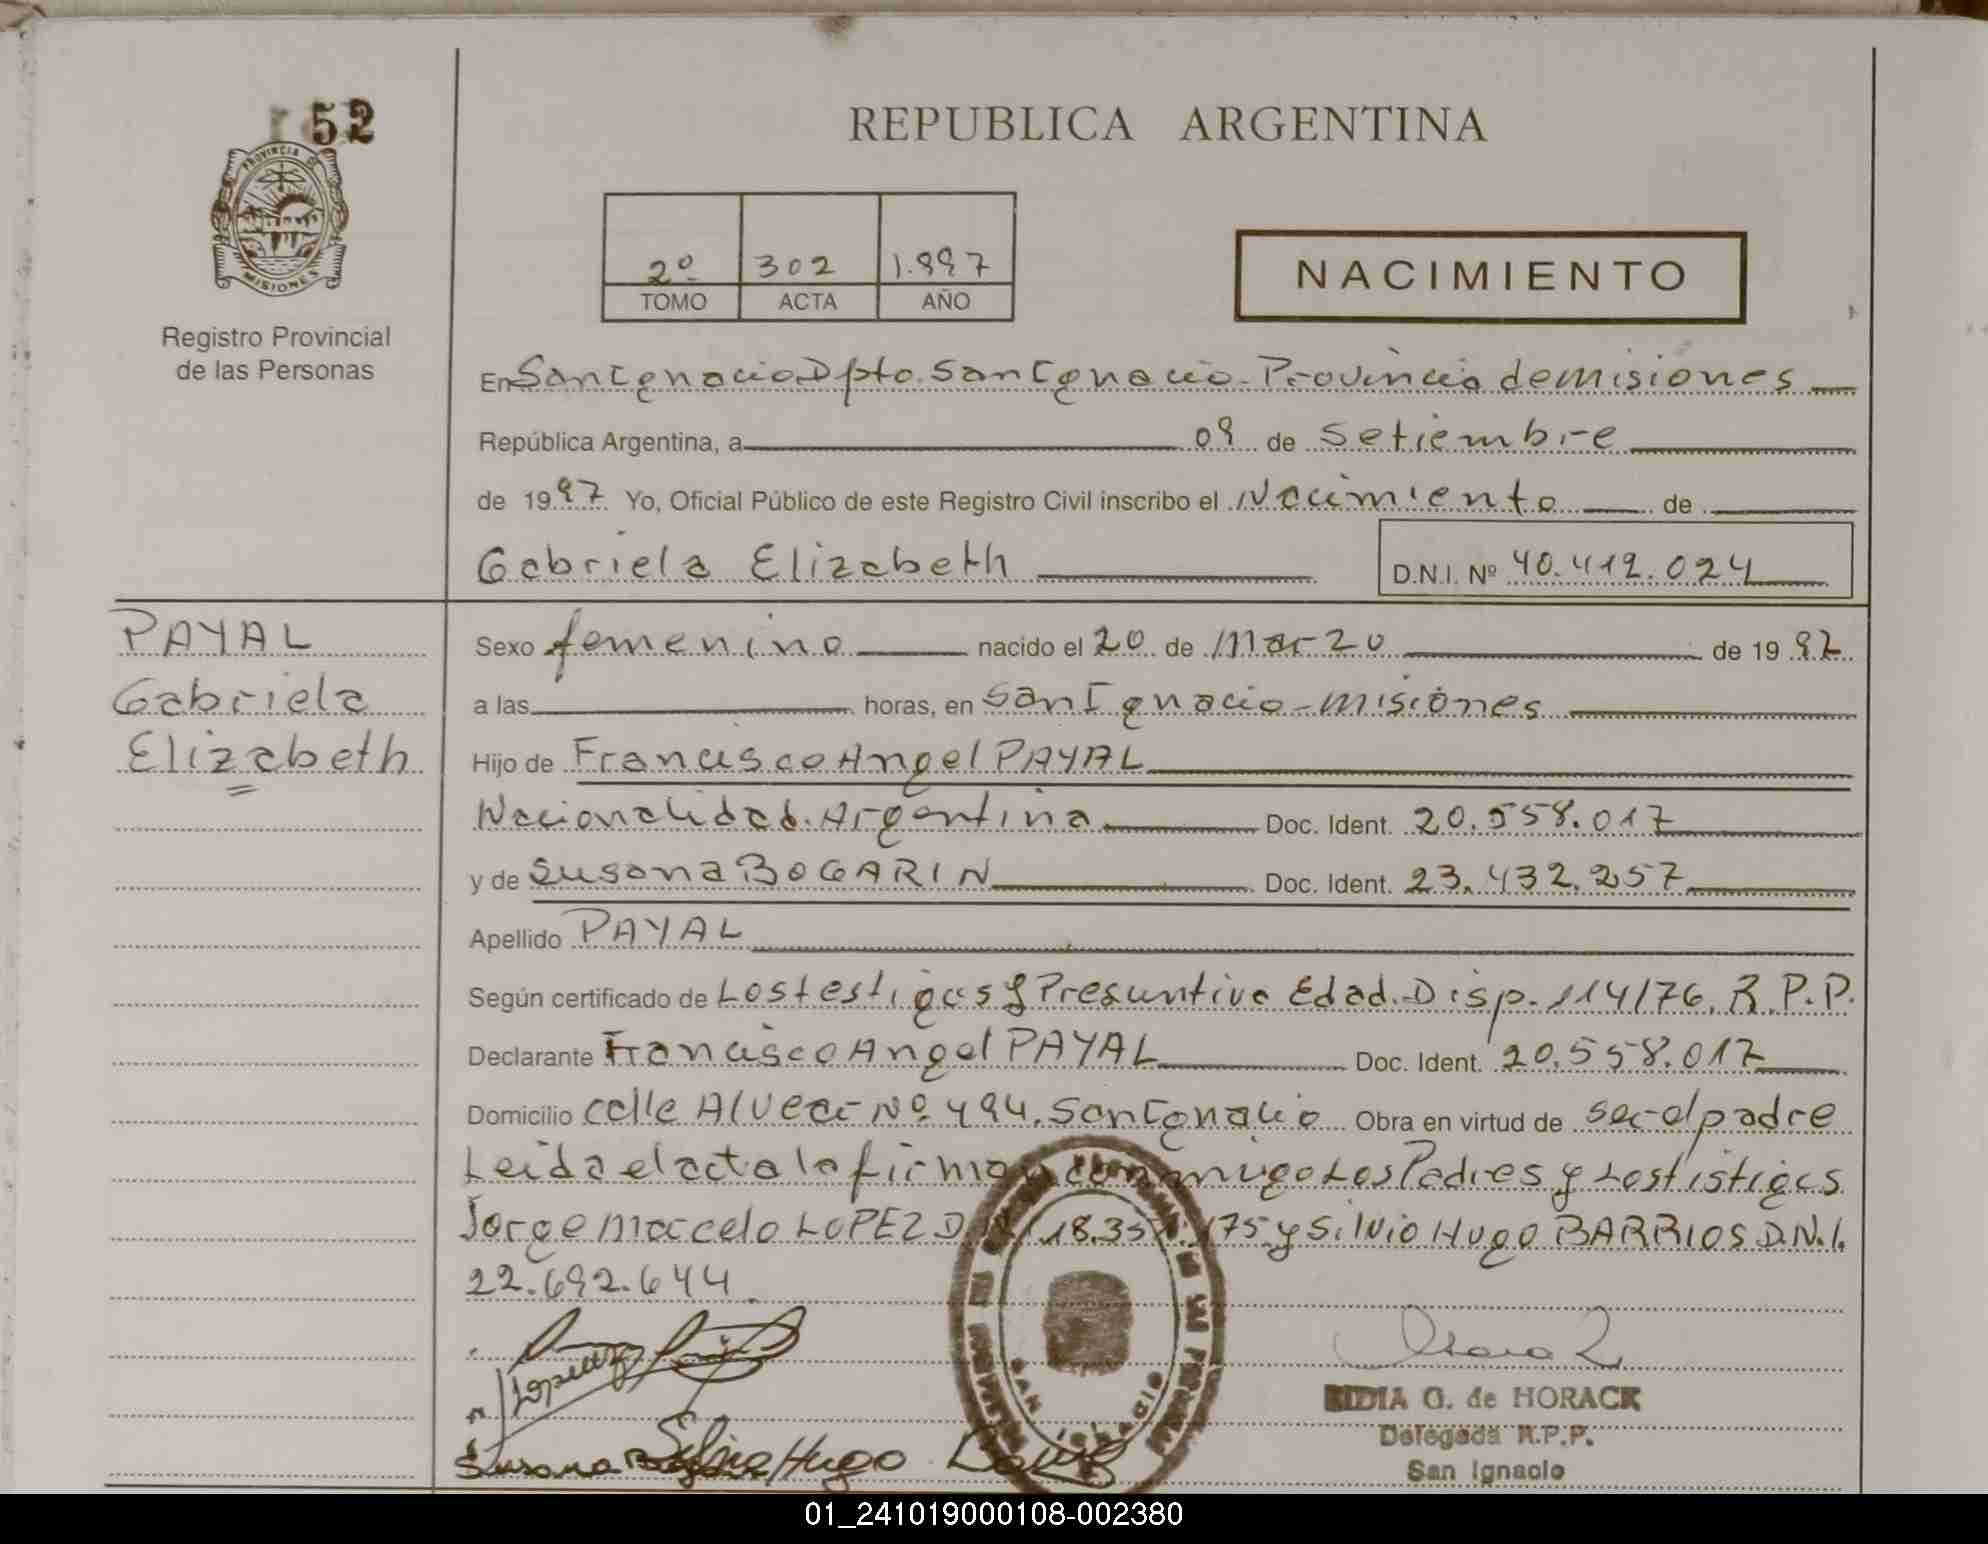 52
PROVINCIA DE
MISIONES
Registro Provincial
de las Personas
REPUBLICA ARGENTINA
2º 302 1.997
TOMO ACTA AÑO
NACIMIENTO
En San Ignacio Dpto. San Ignacio - Provincia de misiones
República Argentina, a 09 de Setiembre
de 1997 Yo, Oficial Público de este Registro Civil inscribo el Nacimiento de
Gabriela Elizabeth D.N.I. Nº 40.412.024
PAYAL
Gabriela
Elizabeth
Sexo femenino nacido el 20 de Marzo de 1997
a las horas, en San Ignacio - misiones
Hijo de Francisco Angel PAYAL
Nacionalidad. Argentina Doc. Ident. 20.558.017
y de Susana BOGARIN Doc. Ident. 23.432.257
Apellido PAYAL
Según certificado de Los testigos y Presuntiva Edad. Disp. 114/76. R.P.P.
Declarante Francisco Angel PAYAL Doc. Ident. 20.558.017
Domicilio calle Alvear Nº 494. San Ignacio Obra en virtud de ser el padre
Leida el acta la firman conmigo Los Padres y Los tistigos
Jorge Marcelo LOPEZ 175 y Silvio Hugo BARRIOS D.N.I.
22.692.644
Susana Silvio Hugo
SAN IGNACIO
RIDIA G. de HORACK
Delegada R.P.P.
San Ignacio
01_241019000108-002380